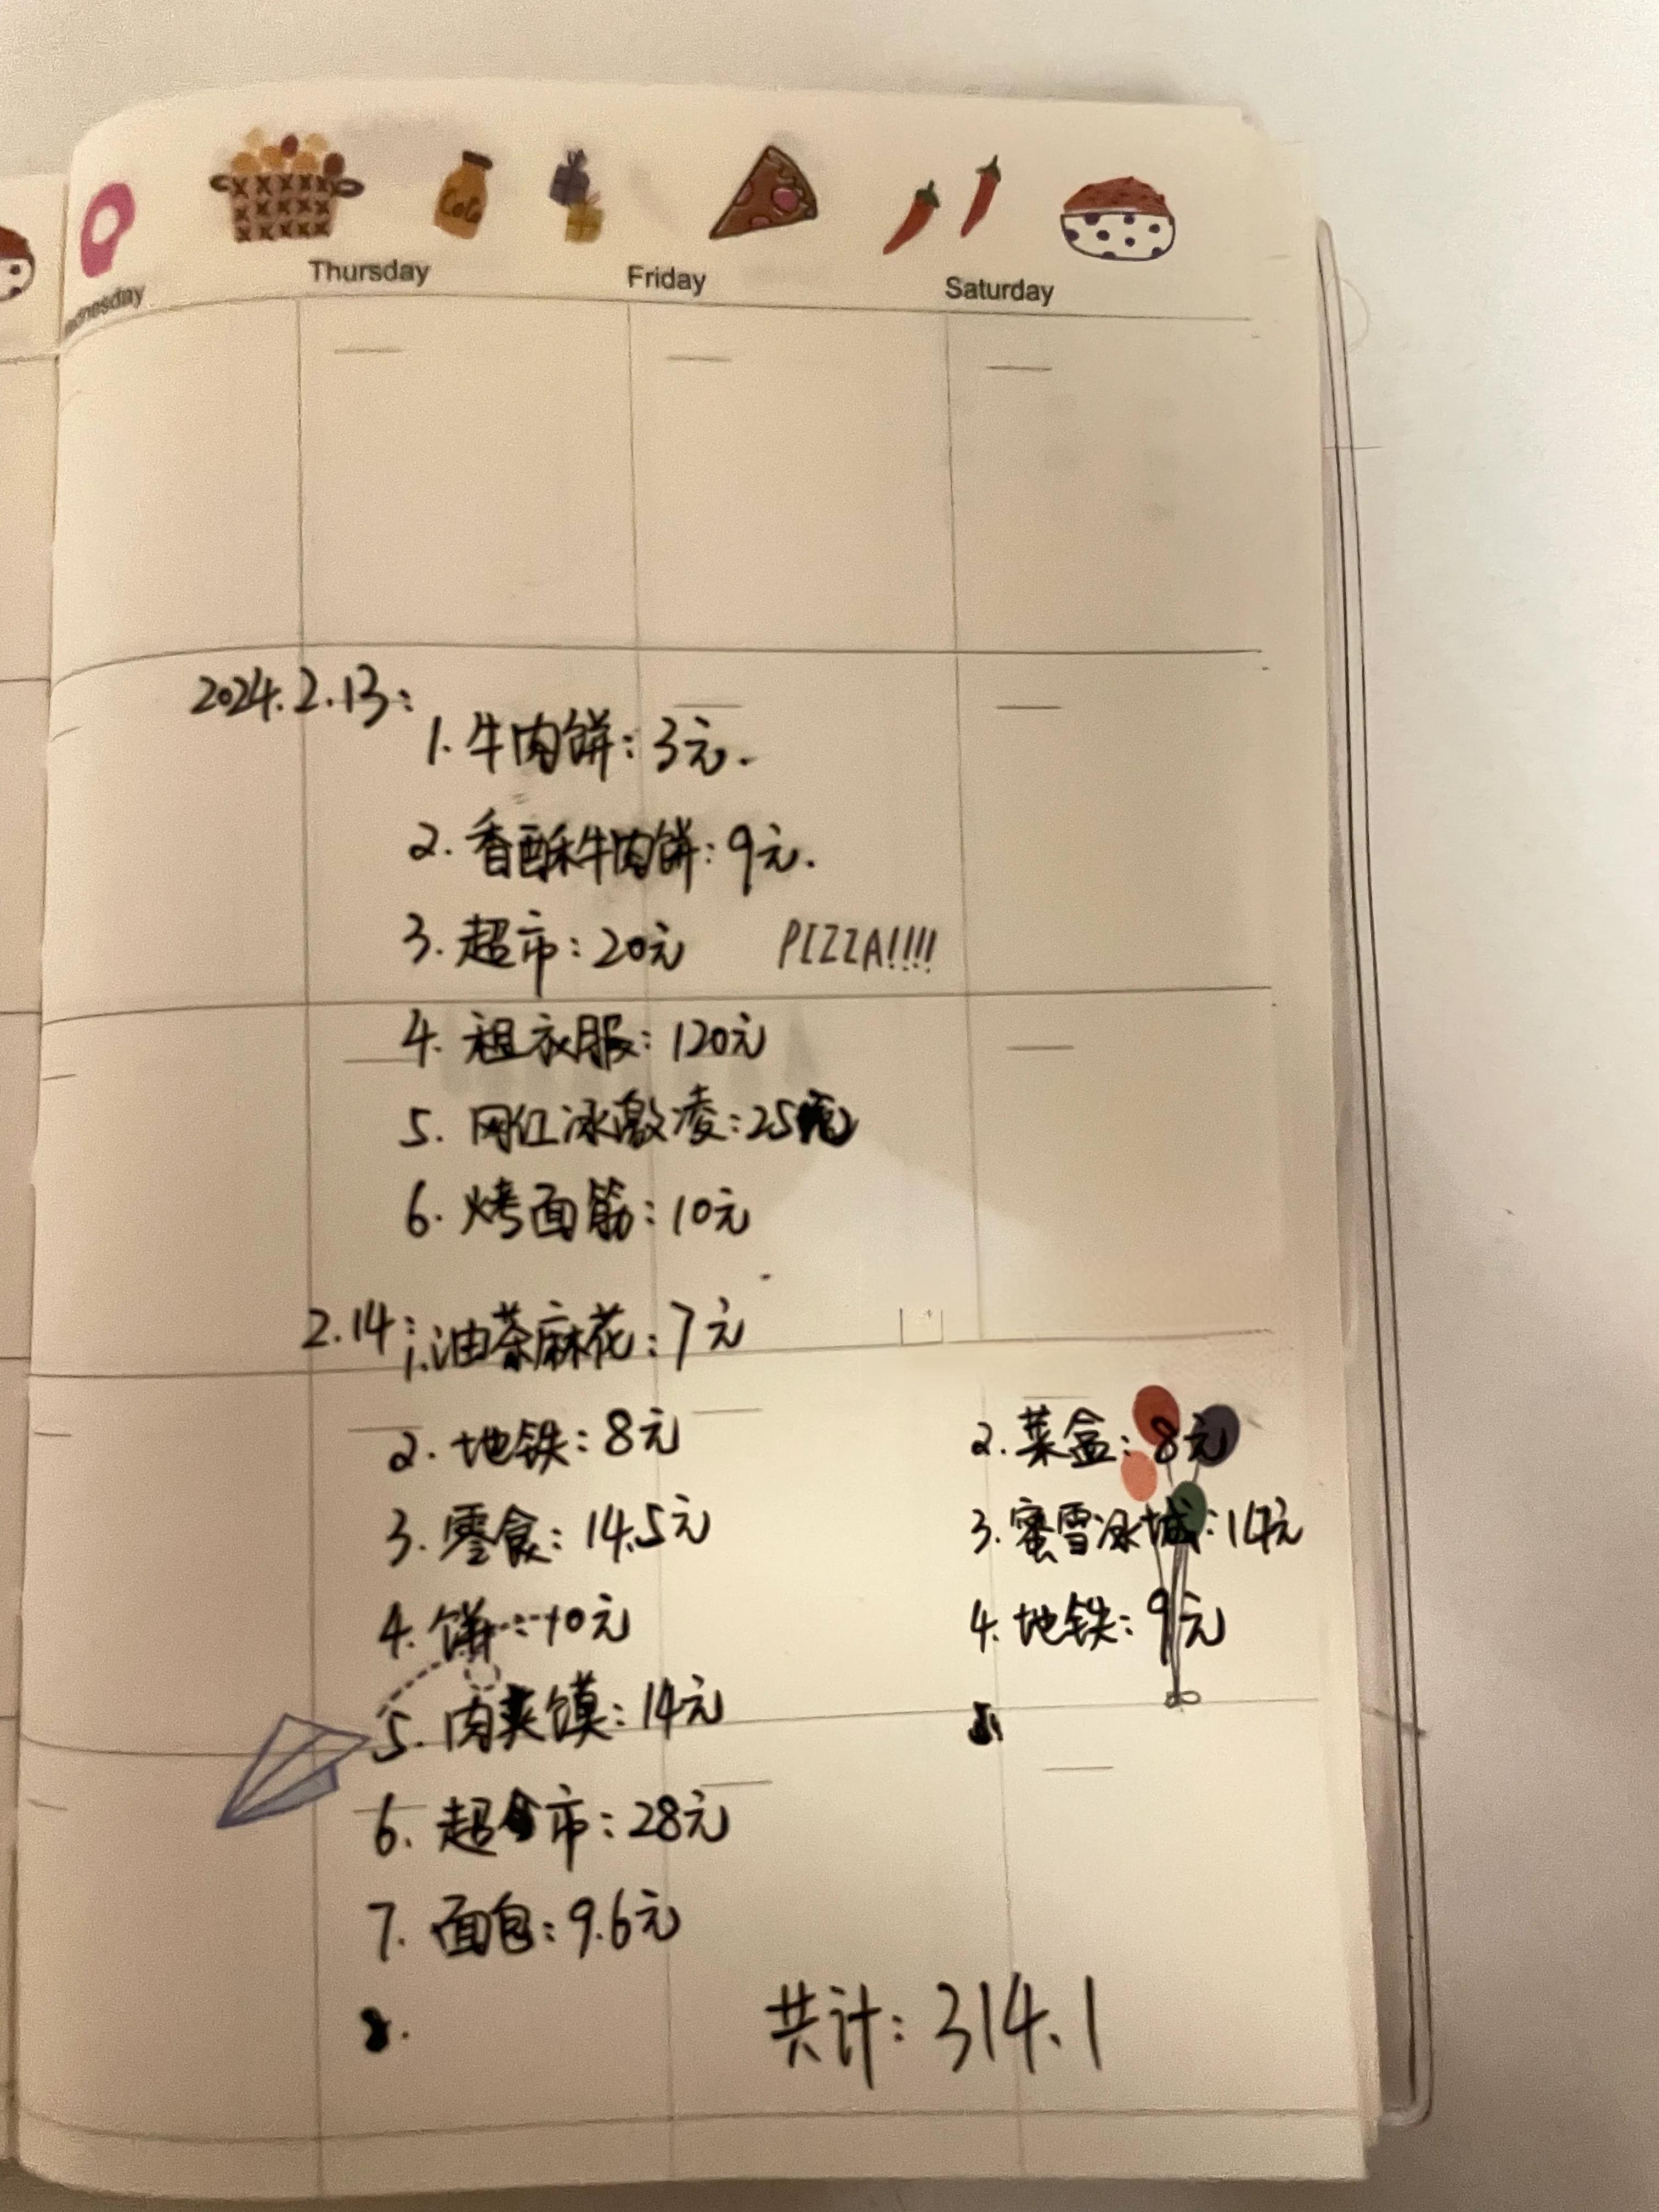 Thursday
Friday
Saturday
2024.2.13:
1. 牛肉饼:3元.
2. 香酥牛肉饼:9元.
3. 超市:20元
PIZZA!!!!
4. 租衣服:120元
5. 网红冰激凌:25元
6. 烤面筋:10元
2.14:
1.油茶麻花:7元
2. 地铁:8元
3. 零食:14.5元
4. 饼:10元
5. 肉夹馍:14元
6. 超市:28元
7. 面包:9.6元
8.
2. 菜盒:8元
3. 蜜雪冰城:14元
4. 地铁:9元
共计:314.1